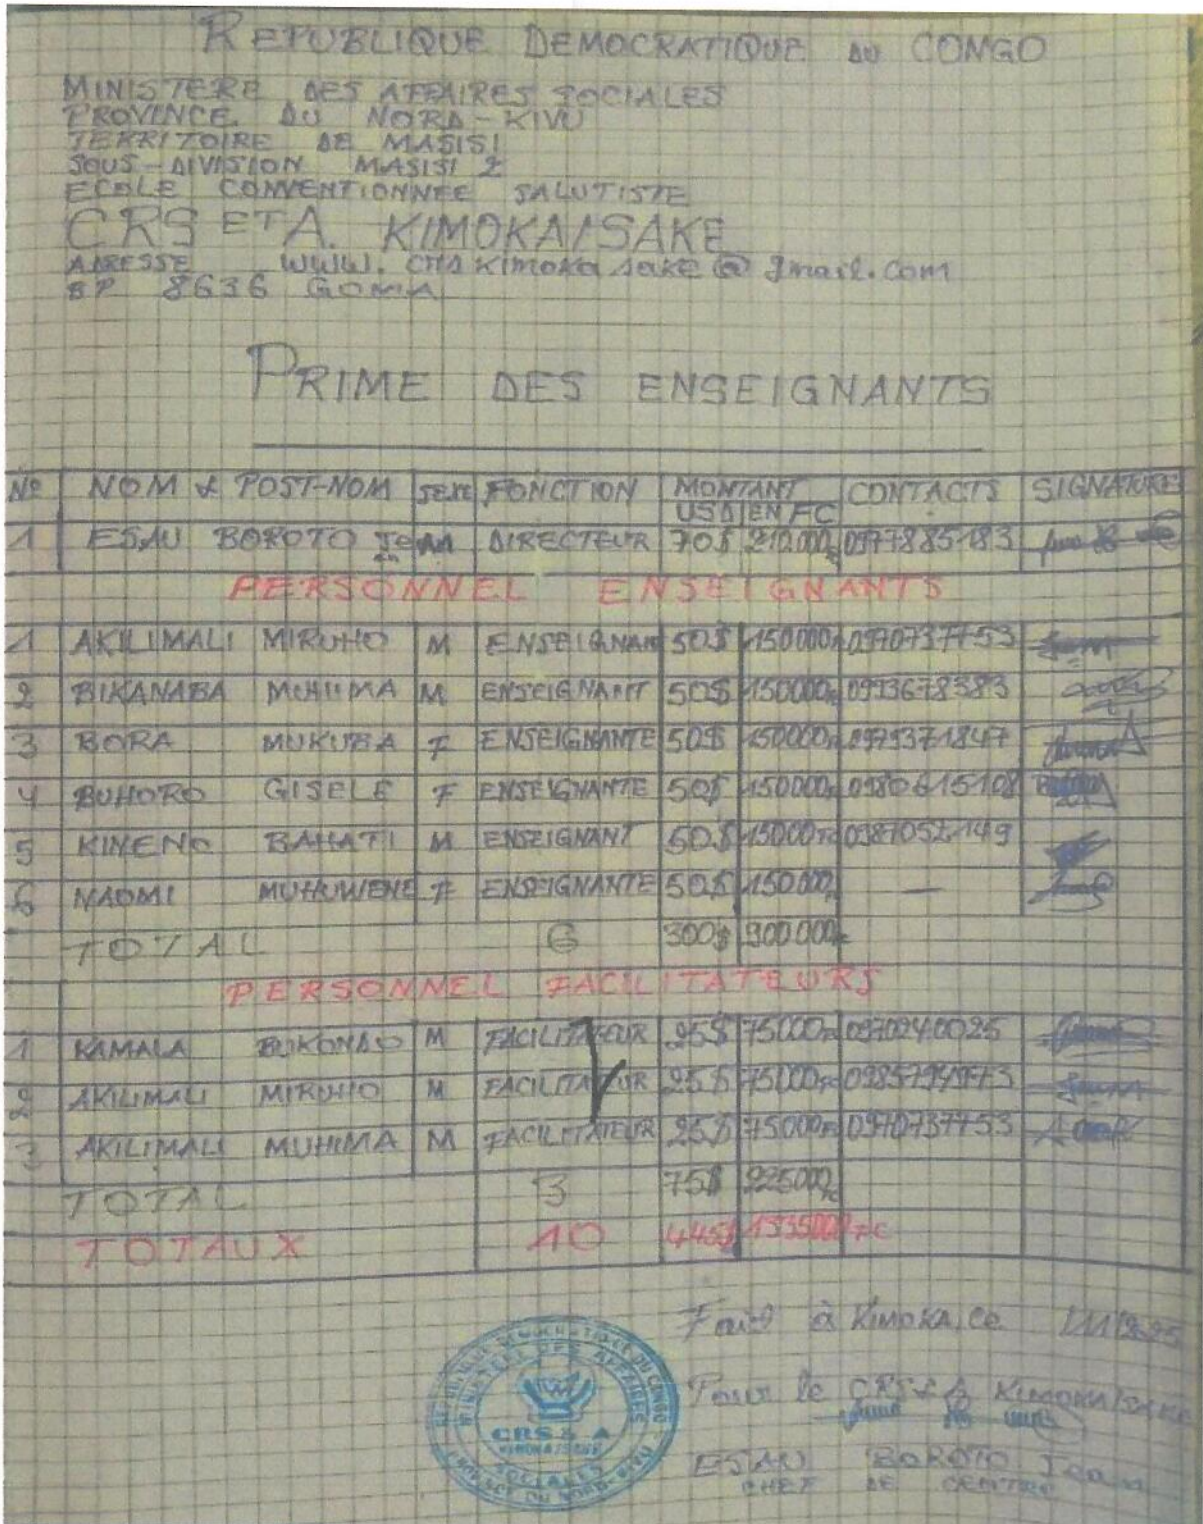 REPUBLIQUE DEMOCRATIQUE DU CONGO
MINISTERE DES AFFAIRES SOCIALES
PROVINCE DU NORD-KIVU
TERRITOIRE DE MASISI
SOUS-DIVISION MASISI 2
ECOLE CONVENTIONNEE SALUTISTE
CRS ET A. KIMOKA/SAKE
ADRESSE WWW. CRSKimoka sake @ gmail.com
BP 8636 GOMA
PRIME DES ENSEIGNANTS
N° NOM & POST-NOM sexe FONCTION MONTANT CONTACTS SIGNATURE
USD EN FC
1 ESAU BOROTO Jean M DIRECTEUR 70$ 210.000 0977885183
PERSONNEL ENSEIGNANTS
1 AKILIMALI MIRUHO M ENSEIGNANT 50$ 150000 0970737753
2 BIKANABA MUHIMA M ENSEIGNANT 50$ 150000 0993678383
3 BORA MUKUBA F ENSEIGNANTE 50$ 150000 0979371847
4 BUHORO GISELE F ENSEIGNANTE 50$ 150000 0980615108
5 KINENO BAHATI M ENSEIGNANT 50$ 15000 FC 0987052149
6 NAOMI MUHUWENE F ENSEIGNANTE 50$ 150.000 —
TOTAL 6 300$ 900.000
PERSONNEL FACILITATEURS
1 KAMALA BUKONDO M FACILITATEUR 25$ 75000 0970240025
2 AKILIMALI MIRUHO M FACILITATEUR 25$ 75000
3 AKILIMALI MUHIMA M FACILITATEUR 25$ 75000 0970737753
TOTAL 3 75$ 225000
TOTAUX 10 445$ 1335000 FC
Fait à KIMOKA, ce
Pour le CRS & A KIMOKA/SAKE
ESAU BOROTO Jean
CHEF DE CENTRE
REPUBLIQUE DEMOCRATIQUE DU CONGO
MINISTERE DES AFFAIRES
CRS & A
KIMOKA/SAKE
SOCIALES
PROVINCE DU NORD-KIVU